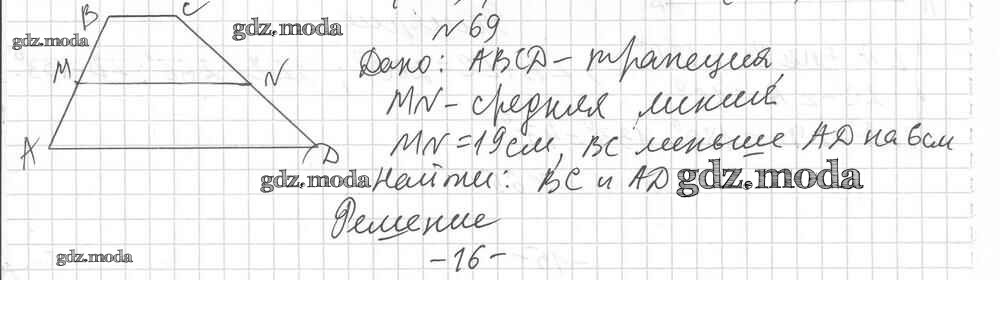 B C
gdz.moda
gdz.moda
N 69
M N
Дано: ABCD - трапеция,
MN - средняя линия
MN = 19 см, BC меньше AD на 6 см
A D
gdz.moda
Найти: BC и AD
gdz.moda
Решение
gdz.moda
-16-